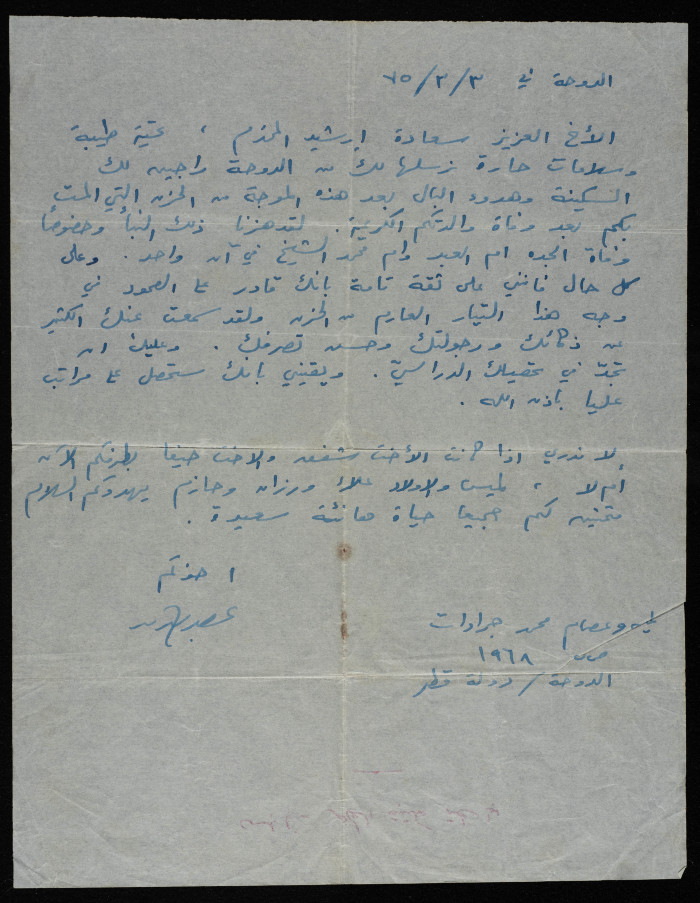 الدوحة في ٣/٣/٧٥
الأخ العزيز سعادة ارشيد المحترم ، تحية طيبة
وسلامات حارة نرسلها لك من الدوحة راجين لك
السكينة وهدوء البال بعد هذه الموجة من الحزن التي المت
بكم بعد وفاة والدتكم الكريمة . لقد هزنا ذلك النبأ وخصوصاً
وفاة الجده ام العبد وام محمد الشيخ في آن واحد . وعلى
كل حال فانني على ثقة تامة بانك قادر على الصمود في
وجه هذا التيار العارم من الحزن ولقد سمعت عنك الكثير
عن ذكائك ورجولتك وحسن تصرفك . وعليك ان
تجدّ في تحصيلك الدراسيّ . ويقيني بانك ستحصل على مراتب
عليا باذن الله .
لا ندري اذا كانت الأخت والاخت حيفا بطرفكم الآن
أم لا ، لميس والاولاد علاء ورزان وحازم يهدونكم السلام
متمنين لكم جميعا حياة هانئة سعيدة .
اخوكم
وعصام محمد جرادات
ص.ب ١٩٦٨
الدوحة / دولة قطر